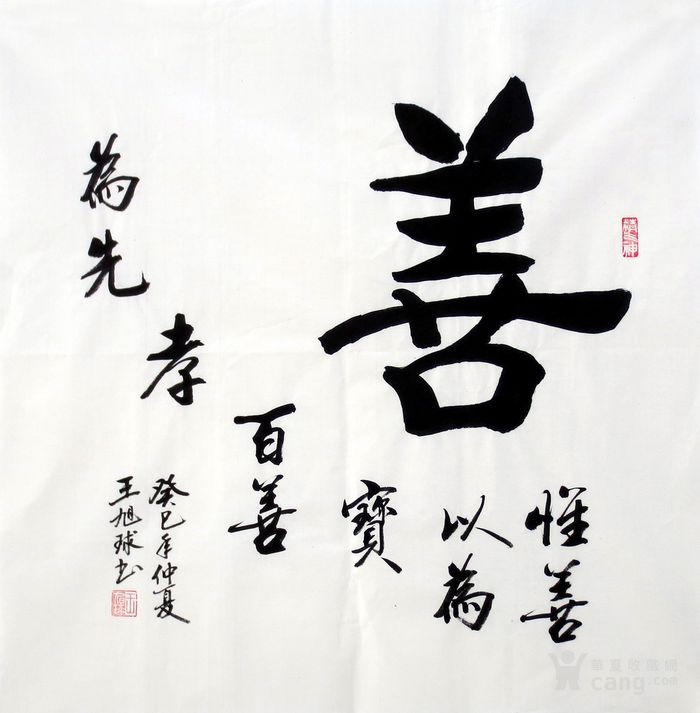 善
惟善
以為
寶
百善
孝
為先
癸巳年仲夏
王旭球书
華夏收藏網
cang.com